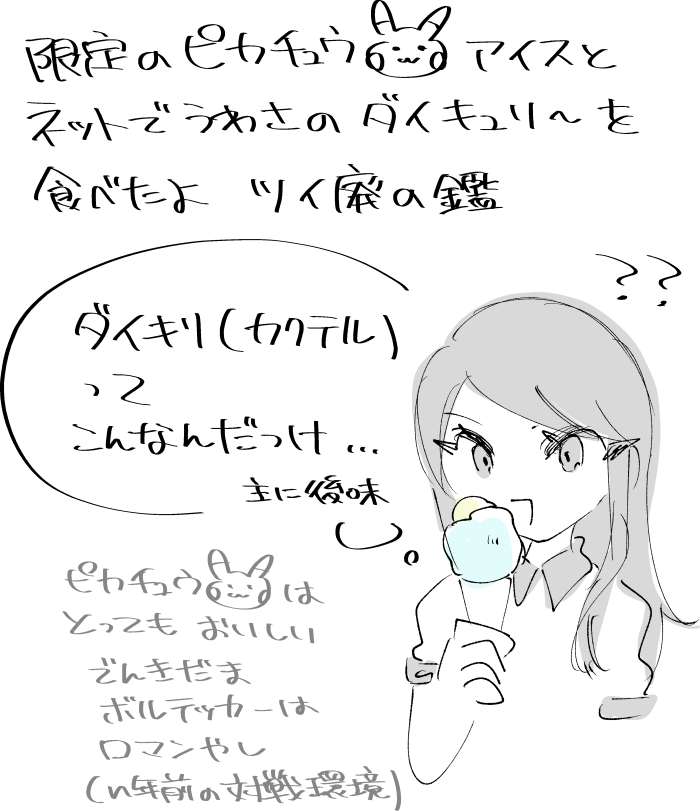 限定のピカチュウアイスと
ネットでうわさのダイキュリ～を
食べたよ ツイ廃の鑑
??
ダイキリ(カクテル)
って
こんなんだっけ…
主に後味
ピカチュウは
とっても おいしい
でんきだま
ボルテッカーは
ロマンやし
(n年前の対戦環境)